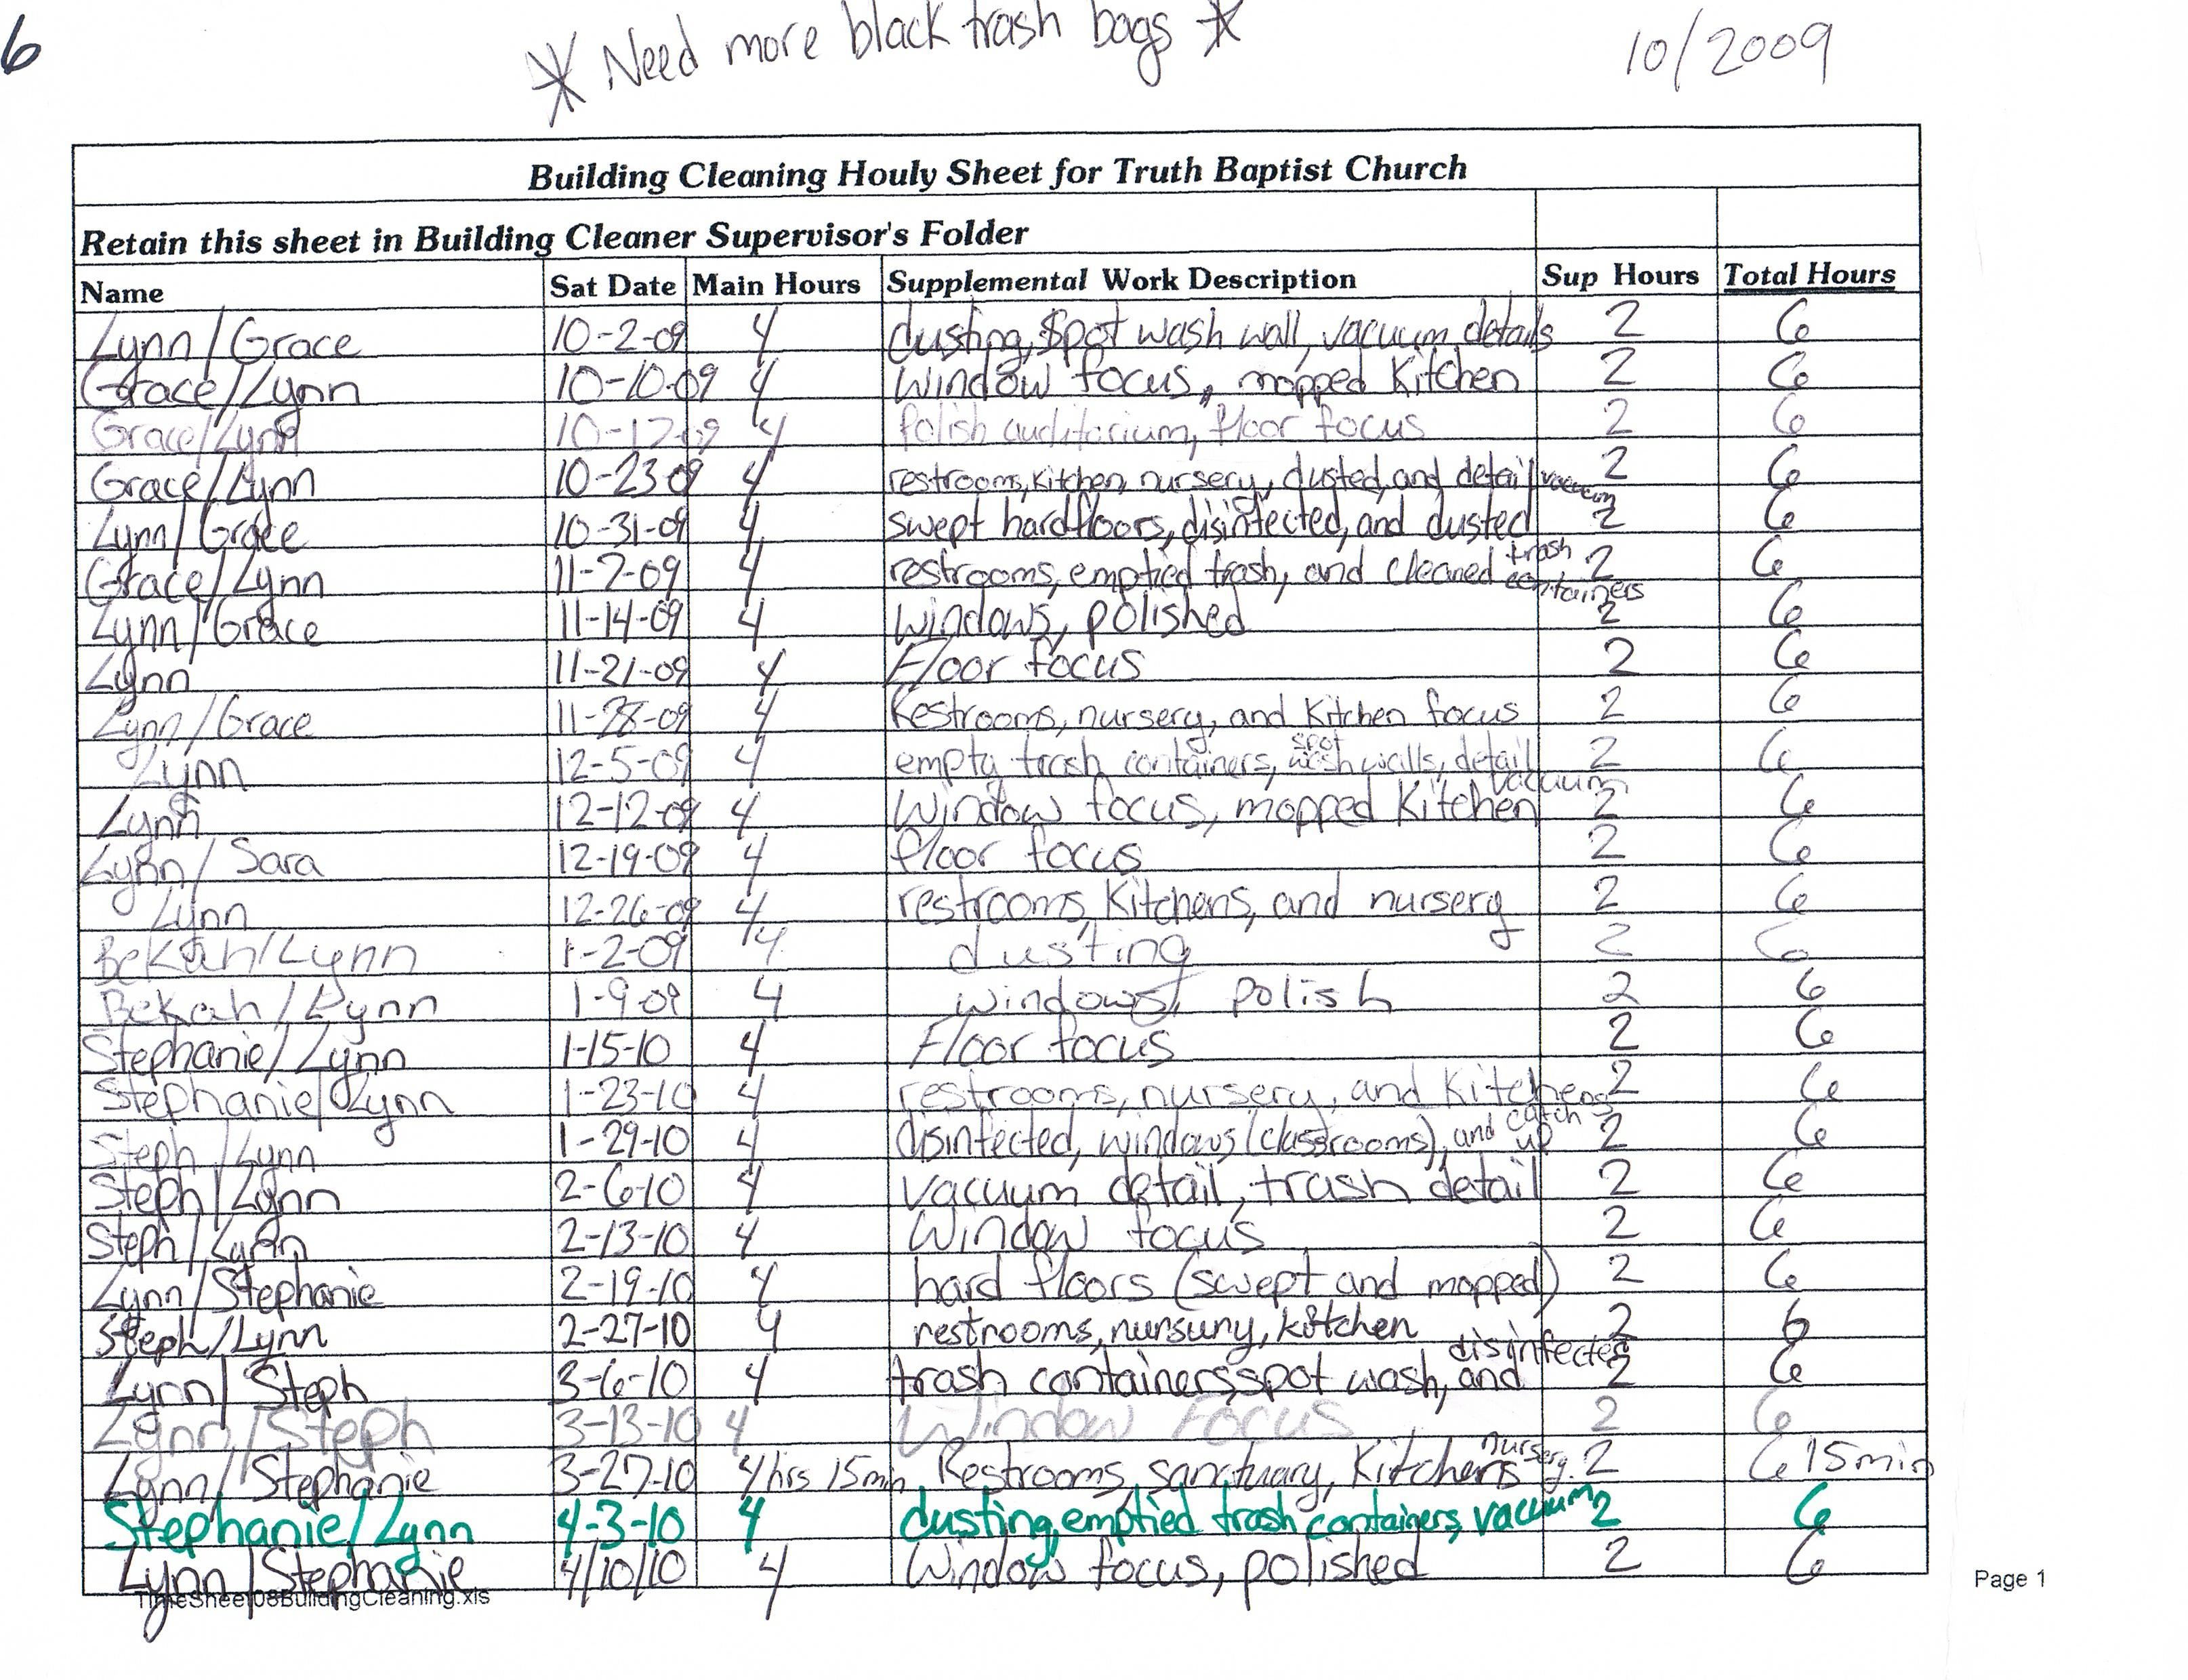 6
* Need more black trash bags *
10/2009
Building Cleaning Houly Sheet for Truth Baptist Church
Retain this sheet in Building Cleaner Supervisor's Folder
Name Sat Date Main Hours Supplemental Work Description Sup Hours Total Hours
Lynn/Grace 10-2-09 4 dusting, spot wash wall, vacuum details 2 6
Grace/Lynn 10-10-09 4 Window focus, mopped Kitchen 2 6
Grace/Lynn 10-17-09 4 Polish auditorium, floor focus 2 6
Grace/Lynn 10-23-09 4 restrooms, kitchen, nursery, dusted, and detail vacuum 2 6
Lynn/Grace 10-31-09 4 swept hardfloors, disinfected, and dusted 2 6
Grace/Lynn 11-7-09 4 restrooms, emptied trash, and cleaned trash containers 2 6
Lynn/Grace 11-14-09 4 Windows, polished 2 6
Lynn 11-21-09 4 Floor focus 2 6
Lynn/Grace 11-28-09 4 Restrooms, nursery, and Kitchen focus 2 6
Lynn 12-5-09 4 empty trash containers, spot wash walls, detail vacuum 2 6
Lynn 12-12-09 4 Window focus, mopped Kitchen 2 6
Lynn/Sara 12-19-09 4 floor focus 2 6
Lynn 12-26-09 4 restrooms, Kitchens, and nursery 2 6
Bekah/Lynn 1-2-09 4 dusting 2 6
Bekah/Lynn 1-9-09 4 windows, polish 2 6
Stephanie/Lynn 1-15-10 4 Floor focus 2 6
Stephanie/Lynn 1-23-10 4 restrooms, nursery, and Kitchens 2 6
Steph/Lynn 1-29-10 4 disinfected, windows (classrooms), and catch up 2 6
Steph/Lynn 2-6-10 4 vacuum detail, trash detail 2 6
Steph/Lynn 2-13-10 4 Window focus 2 6
Lynn/Stephanie 2-19-10 4 hard floors (swept and mopped) 2 6
Steph/Lynn 2-27-10 4 restrooms, nursuny, kitchen 2 6
Lynn/Steph 3-6-10 4 trash containers, spot wash, and disinfected 2 6
Lynn/Steph 3-13-10 4 Window Focus 2 6
Lynn/Stephanie 3-27-10 4 hrs 15min Restrooms, sanctuary, Kitchens nursery. 2 6 15min
Stephanie/Lynn 4-3-10 4 dusting, emptied trash containers, vacuum 2 6
Lynn/Stephanie 4/10/10 4 Window focus, polished 2 6
TimeSheet08BuildingCleaning.xls
Page 1